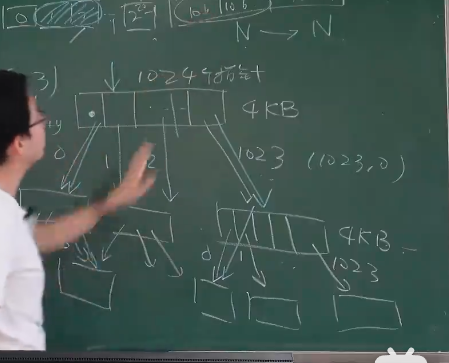 0 2²⁰ 10b 10b
N → N
3) 1024个指针
4KB
y 0 1 2 1023 (1023,0)
4KB
0 1 1023